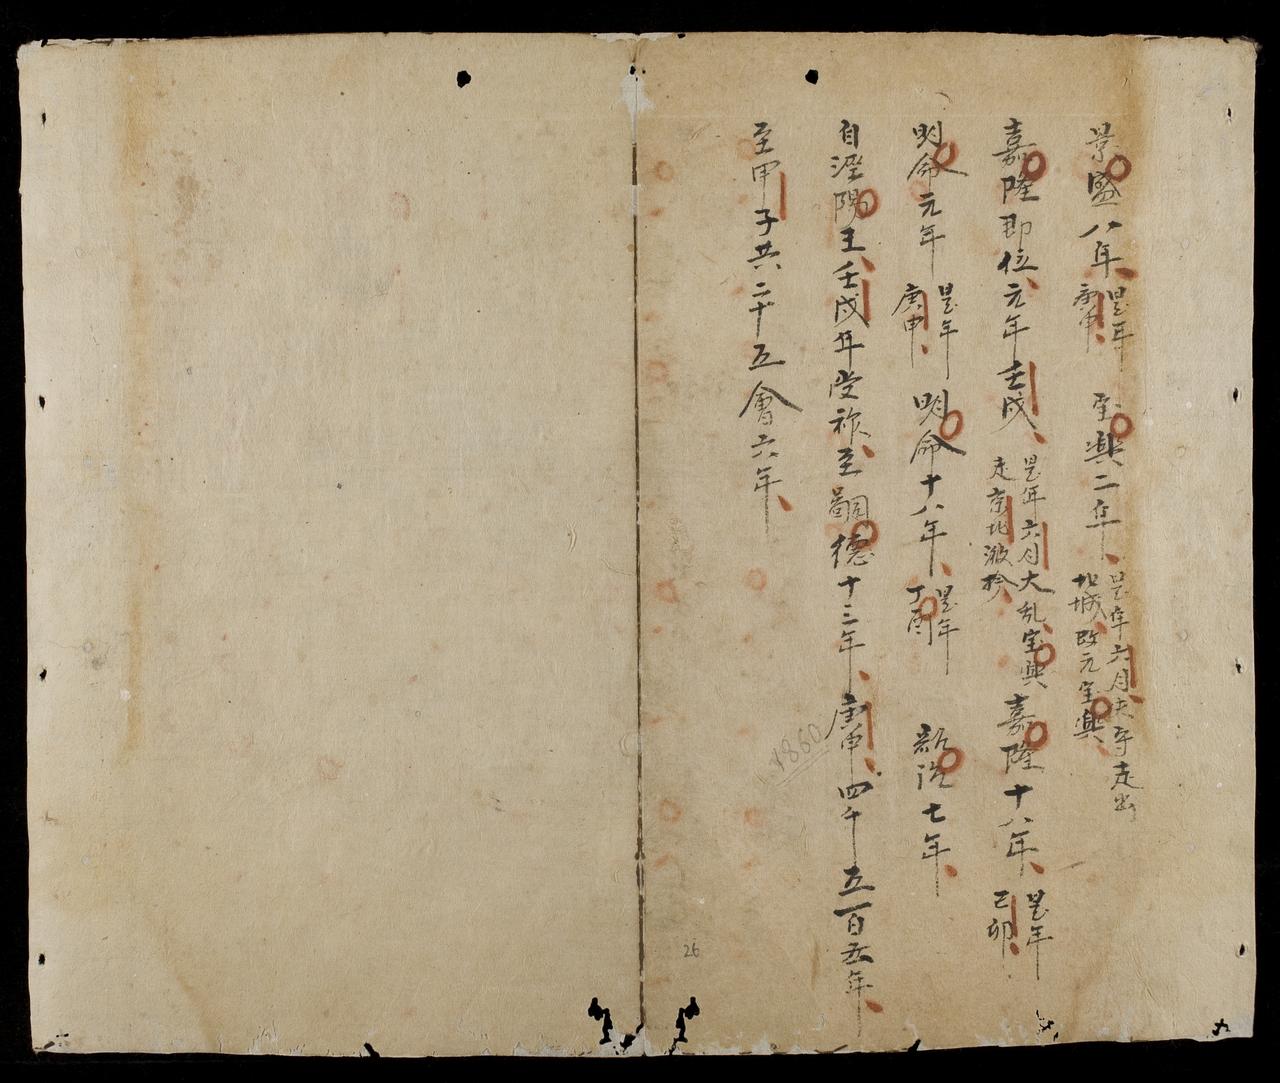 景盛八年 是年庚申 宝興二年 是年六月 走出北城改元宝興
嘉隆即位元年壬戌 是年六月大乱宝興走京北 嘉隆十八年 是年己卯
明命元年 是年庚申 明命十八年 是年丁酉 紹治七年
自涇陽王壬戌年受 至嗣德十三年庚申四千五百五年
至甲子共二十五會六年
1860
26